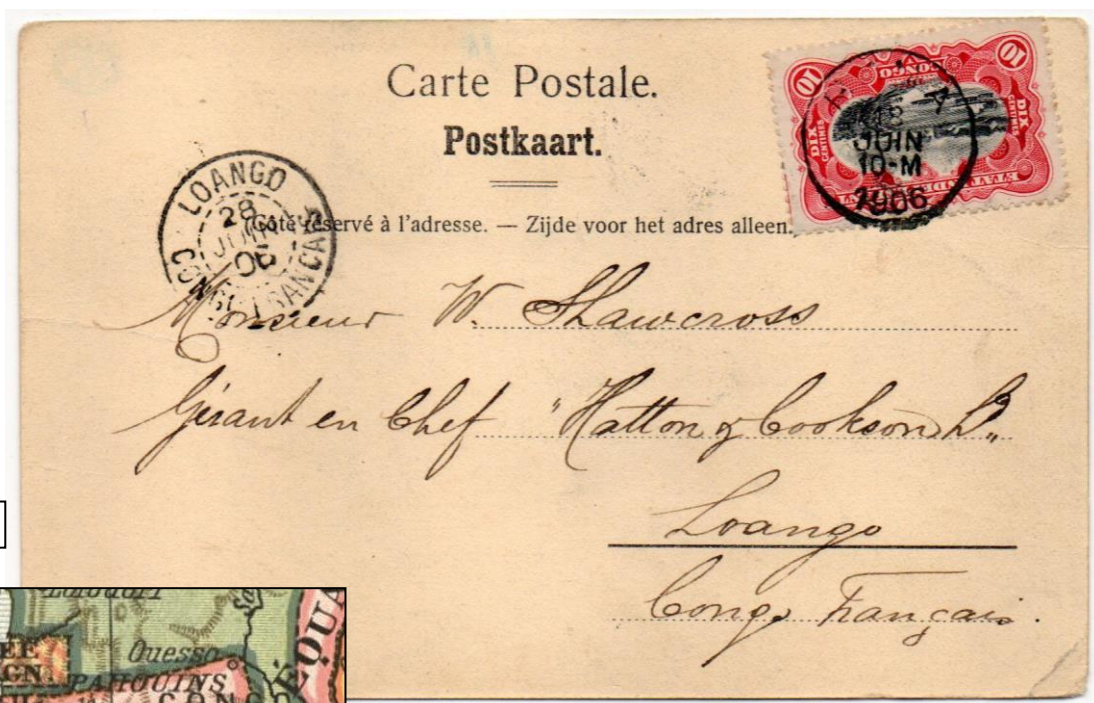 Carte Postale.
Postkaart.
Côté réservé à l'adresse. — Zijde voor het adres alleen.
LOANGO
28
JUIN
06
CONGO FRANCAIS
10 CONGO 10
DIX CENTIMES DIX CENTIMES
18
JUIN
10-M
1906
Monsieur W. Shawcross
Gérant en Chef "Hatton & Cookson Ld"
Loango
Congo Français.
Ouesso
PAHOUINS